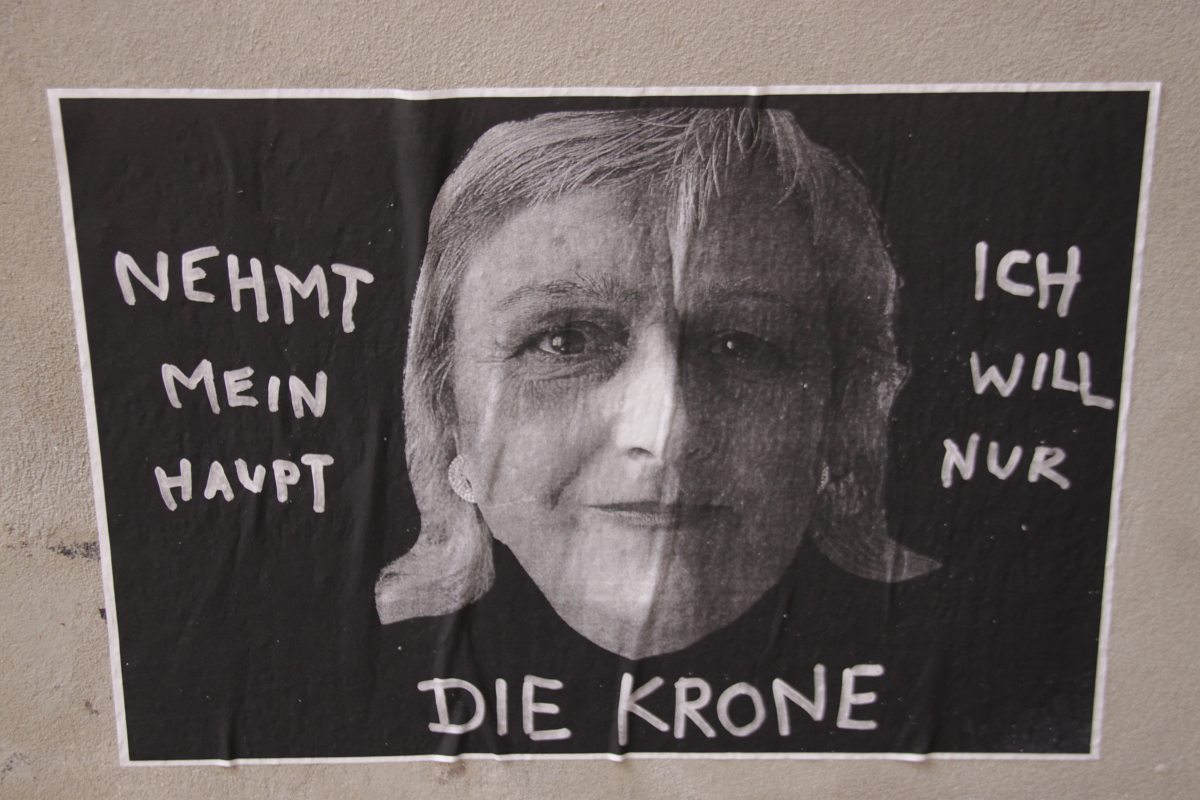 NEHMT
MEIN
HAUPT
ICH
WILL
NUR
DIE KRONE